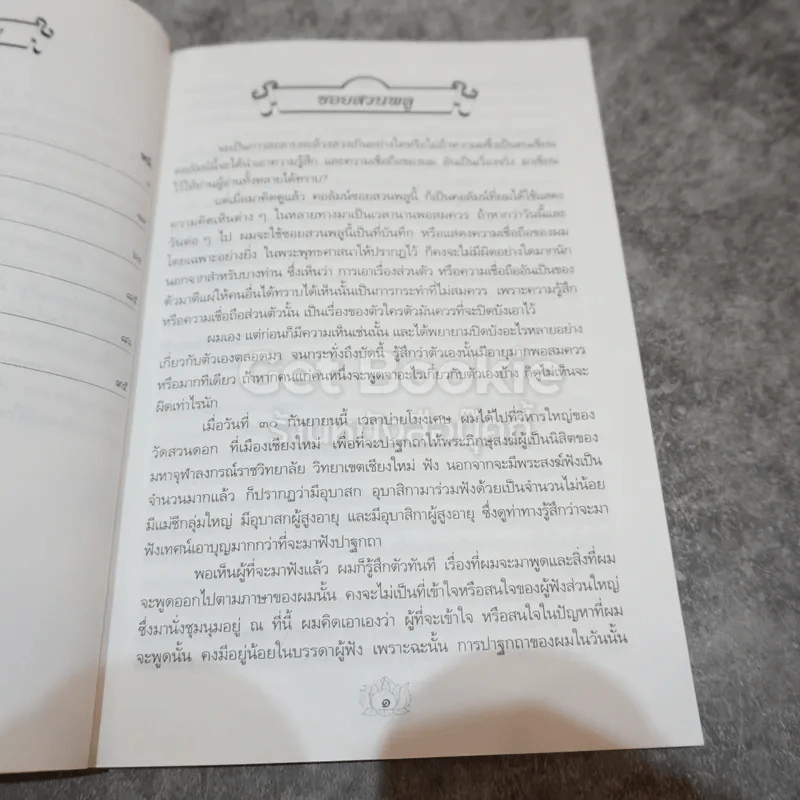 ซอยสวนพลู
จะเป็นการละลาบละล้วงล่วงเกินอย่างใดหรือไม่ถ้าความซึ่งเป็นคนเขียน
คอลัมน์นี้จะได้นำเอาความรู้สึก และความเชื่อถือของตน อันเป็นเรื่องจริง มาเขียน
ไว้ให้ท่านผู้อ่านทั้งหลายได้ทราบ?
แต่เมื่อมาคิดดูแล้ว คอลัมน์ซอยสวนพลูนี้ ก็เป็นคอลัมน์ที่ผมได้ใช้แสดง
ความคิดเห็นต่าง ๆ ในหลายทางมาเป็นเวลานานพอสมควร ถ้าหากว่าวันนี้และ
วันต่อ ๆ ไป ผมจะใช้ซอยสวนพลูนี้เป็นที่บันทึก หรือแสดงความเชื่อถือของผม
โดยเฉพาะอย่างยิ่ง ในพระพุทธศาสนาให้ปรากฏไว้ ก็คงจะไม่มีผิดอย่างใดมากนัก
นอกจากสำหรับบางท่าน ซึ่งเห็นว่า การเอาเรื่องส่วนตัว หรือความเชื่อถืออันเป็นของ
ตัวมาตีแผ่ให้คนอื่นได้ทราบได้เห็นนั้นเป็นการกระทำที่ไม่สมควร เพราะความรู้สึก
หรือความเชื่อถือส่วนตัวนั้น เป็นเรื่องของตัวใครตัวมันควรที่จะปิดบังเอาไว้
ผมเอง แต่ก่อนก็มีความเห็นเช่นนั้น และได้พยายามปิดบังอะไรหลายอย่าง
เกี่ยวกับตัวเองตลอดมา จนกระทั่งถึงบัดนี้ รู้สึกว่าตัวเองนั้นมีอายุมากพอสมควร
หรือมากทีเดียว ถ้าหากคนแก่คนหนึ่งจะพูดจาอะไรเกี่ยวกับตัวเองบ้าง ก็ดูไม่เห็นจะ
ผิดเท่าไรนัก
เมื่อวันที่ ๓๐ กันยายนนี้ เวลาบ่ายโมงเศษ ผมได้ไปที่วิหารใหญ่ของ
วัดสวนดอก ที่เมืองเชียงใหม่ เพื่อที่จะปาฐกถาให้พระภิกษุสงฆ์ผู้เป็นนิสิตของ
มหาจุฬาลงกรณ์ราชวิทยาลัย วิทยาเขตเชียงใหม่ ฟัง นอกจากจะมีพระสงฆ์ฟังเป็น
จำนวนมากแล้ว ก็ปรากฏว่ามีอุบาสก อุบาสิกามาร่วมฟังด้วยเป็นจำนวนไม่น้อย
มีแม่ชีกลุ่มใหญ่ มีอุบาสกผู้สูงอายุ และมีอุบาสิกาผู้สูงอายุ ซึ่งดูท่าทางรู้สึกว่าจะมา
ฟังเทศน์เอาบุญมากกว่าที่จะมาฟังปาฐกถา
พอเห็นผู้ที่จะมาฟังแล้ว ผมก็รู้สึกตัวทันที เรื่องที่ผมจะมาพูดและสิ่งที่ผม
จะพูดออกไปตามภาษาของผมนั้น คงจะไม่เป็นที่เข้าใจหรือสนใจของผู้ฟังส่วนใหญ่
ซึ่งมานั่งชุมนุมอยู่ ณ ที่นี้ ผมคิดเอาเองว่า ผู้ที่จะเข้าใจ หรือสนใจในปัญหาที่ผม
จะพูดนั้น คงมีอยู่น้อยในบรรดาผู้ฟัง เพราะฉะนั้น การปาฐกถาของผมในวันนั้น
๑
Get Bookie